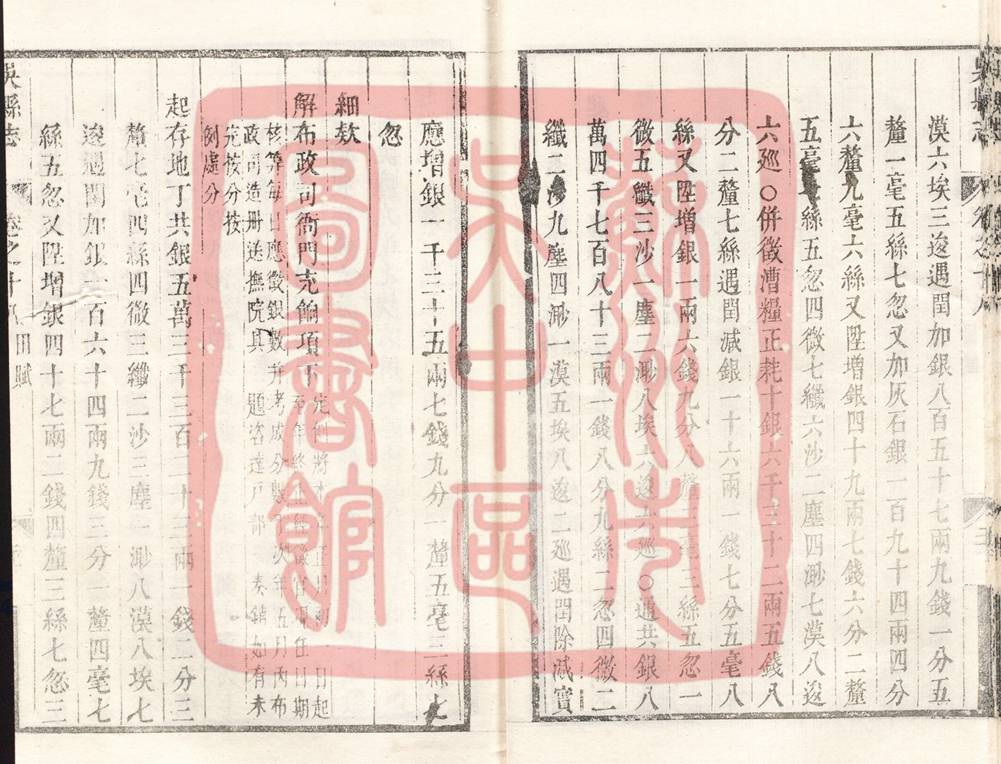 漠六埃三逡遇閏加銀八百五十七兩九錢一分五
釐一毫五絲七忽又加灰石銀二百九十四兩四分
六釐九毫六絲又陞增銀四十九兩七錢六分二釐
五毫 絲五忽四微七纖六沙二塵四渺七漠八逡
六廵○併徵漕糧正耗十銀六千三十二兩五錢八
分二釐七絲遇閏減銀一十六兩 錢七分五毫八
絲又陞增銀一兩六錢九分八釐 毫三絲五忽一
微五纖三沙一塵二渺八埃六逡六廵○通共銀八
萬四千七百八十三兩一錢八分九絲二忽四微二
纖二 九塵四渺一漠五埃八逡二廵遇閏除減實
應增銀一千二十五兩七錢九分一釐五毫三絲七
忽
細欵
解布政司衙門充餉項下
核等每日應徵銀數 考成分 次年五月內布
政司造册送撫院具 題咨達戸部 奏銷如有未
完按分數
例處分
起存地丁共銀五萬三千三百二十三兩一錢二分三
釐七毫四絲四微三纖二沙三塵一渺八漠八埃七
逡遇閏加銀一百六十四兩九錢三分一釐四毫七
絲五忽又陞增銀四十七兩二錢四釐三絲七忽三
吳縣志 卷之十 田賦
蘇州市
吳中區
圖書館